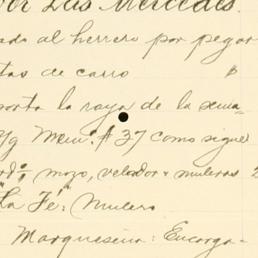 Por Las Mercedes.
ado al herrero por pegar
tas de carro $
porta la raya de la sema
Mem: # 37 como sigue
mozo, velador + muleros 2
"La Fé": Mulero
Marquesina: Encarga-